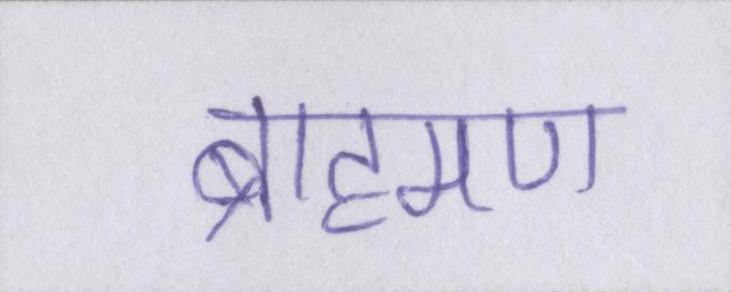 ब्राहमण